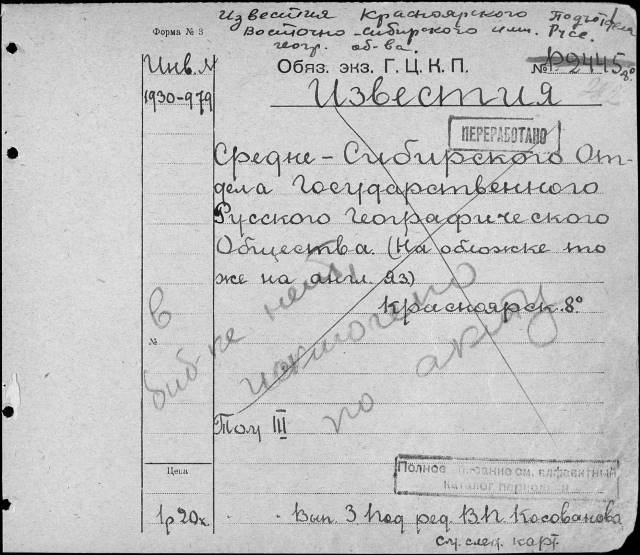 Известия Красноярского Подъотдела
Восточно-сибирского имп. Русс.
геогр. об-ва.
Форма № 3
Обяз. экз. Г. Ц. К. П.
№ р2445 8°
Инв. №
1930-979
Известия
ПЕРЕРАБОТАНО
Средне-Сибирского От-
дела Государственного
Русского Географического
Общества. (На обложке то
же на англ. яз)
Красноярск. 8°
в
биб-ке нет
№
по акту
Том III
Полное описание см. алфавитный
каталог
Цена
1р 20к.
Вып. 3 Под ред. В. П. Косованова
См. след. карт.